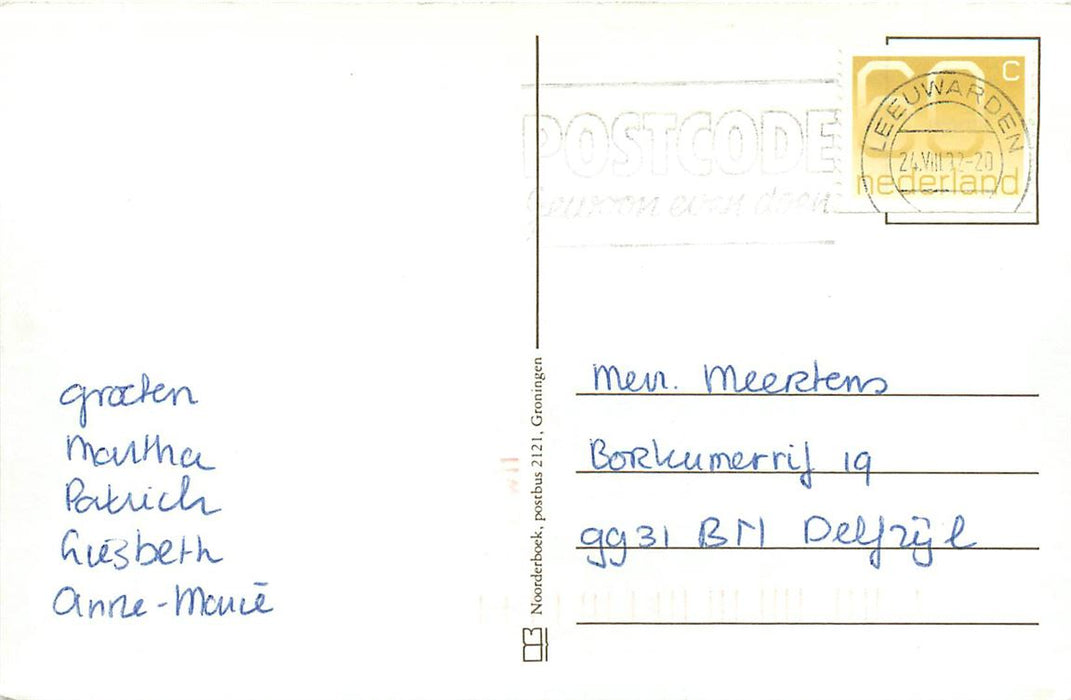 groeten
Martha
Patrick
Liesbeth
Anne-Marie
Noorderboek, postbus 2121, Groningen
POSTCODE
gewoon even doen
60 C
nederland
LEEUWARDEN
24.VIII.92-20
Mevr. Meertens
Borkumerrij 19
9931 BM Delfzijl